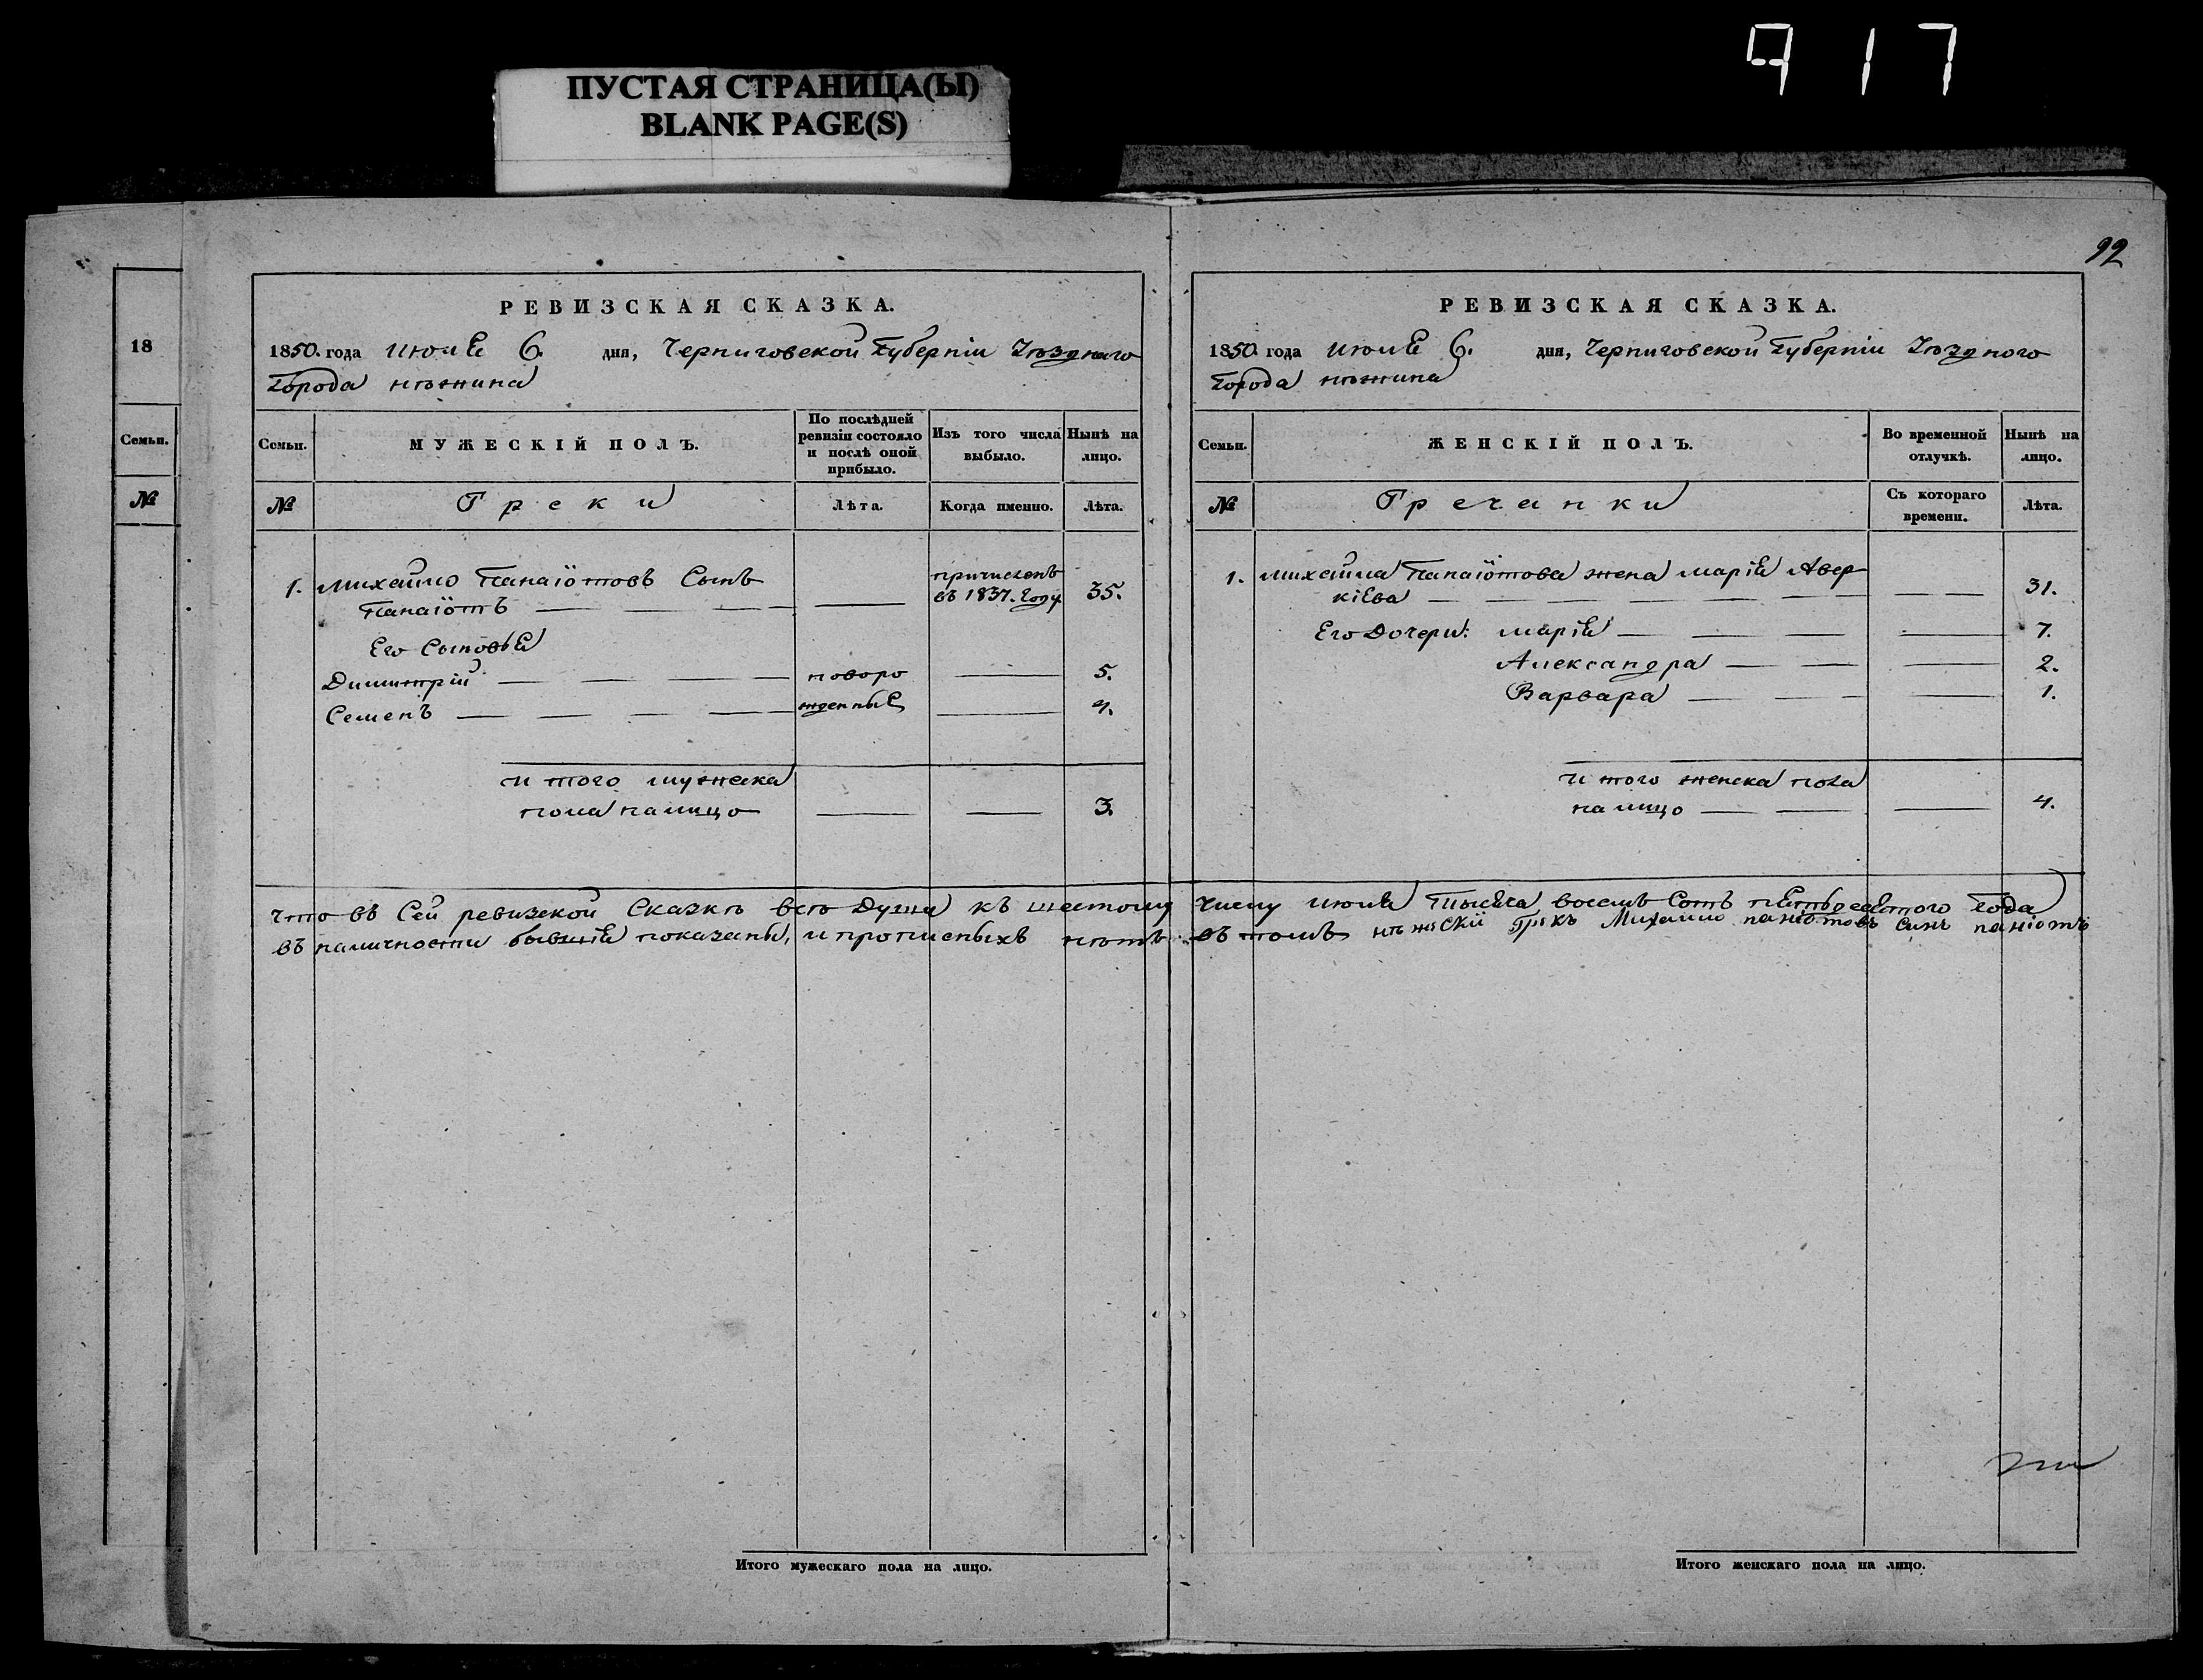 917
ПУСТАЯ СТРАНИЦА(Ы)
BLANK PAGE(S)
18
Семьи.
№
РЕВИЗСКАЯ СКАЗКА.
1850. года июля 6. дня, Черниговской Губернiи Уѣзднаго
Города нѣжина
Семьи.
МУЖЕСКIЙ ПОЛЪ.
По послѣдней ревизiи состояло и послѣ оной прибыло.
Изъ того числа выбыло.
Нынѣ на лицо.
№
Греки
Лѣта.
Когда именно.
Лѣта.
1. Михайло Панаiотовъ Сынъ
Панаiотъ — — — — — причисленъ въ 1837. году 35.
Его Сыновья
Димитрiй — — — — новоро — 5.
Семенъ — — — — жденные — 4.
и того мужеска
пола налицо — — 3.
Итого мужескаго пола на лицо.
92
РЕВИЗСКАЯ СКАЗКА.
1850 года июля 6. дня, Черниговской Губернiи Уѣздного
Города нѣжина
Семьи.
ЖЕНСКIЙ ПОЛЪ.
Во временной отлучкѣ.
Нынѣ на лицо.
№
Гречанки
Съ котораго времени.
Лѣта.
1. Михайла Панаiотова жена марiя Авер
кiева — — — — — — — 31.
Его Дочери: марiя — — — — 7.
Александра — — — 2.
Варвара — — — 1.
и того женска пола
на лицо — — — 4.
Что въ Сей ревизской Сказкѣ всѣ Души къ шестому Числу июля Тысяча восемь Сотъ пятьдесятого Года
въ наличности бывшiя показаны, и прописныхъ нѣтъ. въ томъ нѣжѣскiй Грекъ Михайло панiотовъ Синъ панiотъ
Итого женскаго пола на лицо.